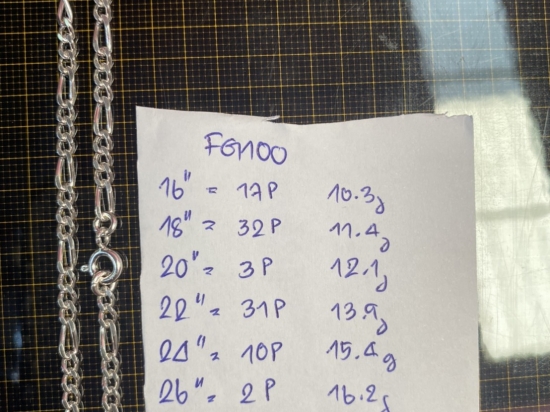 FGN100
16" = 17P 10.3g
18" = 32P 11.4g
20" = 3P 12.1g
22" = 31P 13.9g
24" = 10P 15.4g
26" = 2P 16.2g